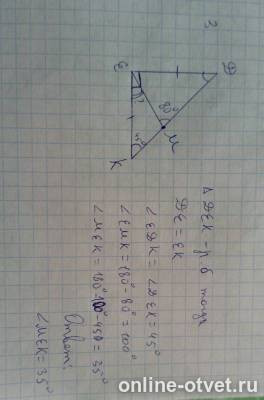 3
Д
E
M
K
80°
?
45°
Δ ДЕК - р.б тогда
DE = EK
∠EДK = ∠ДEK = 45°
∠EMK = 180° - 80° = 100°
∠MEK = 180° - 100° - 45° = 35°
Ответ:
∠MEK = 35°
online-otvet.ru